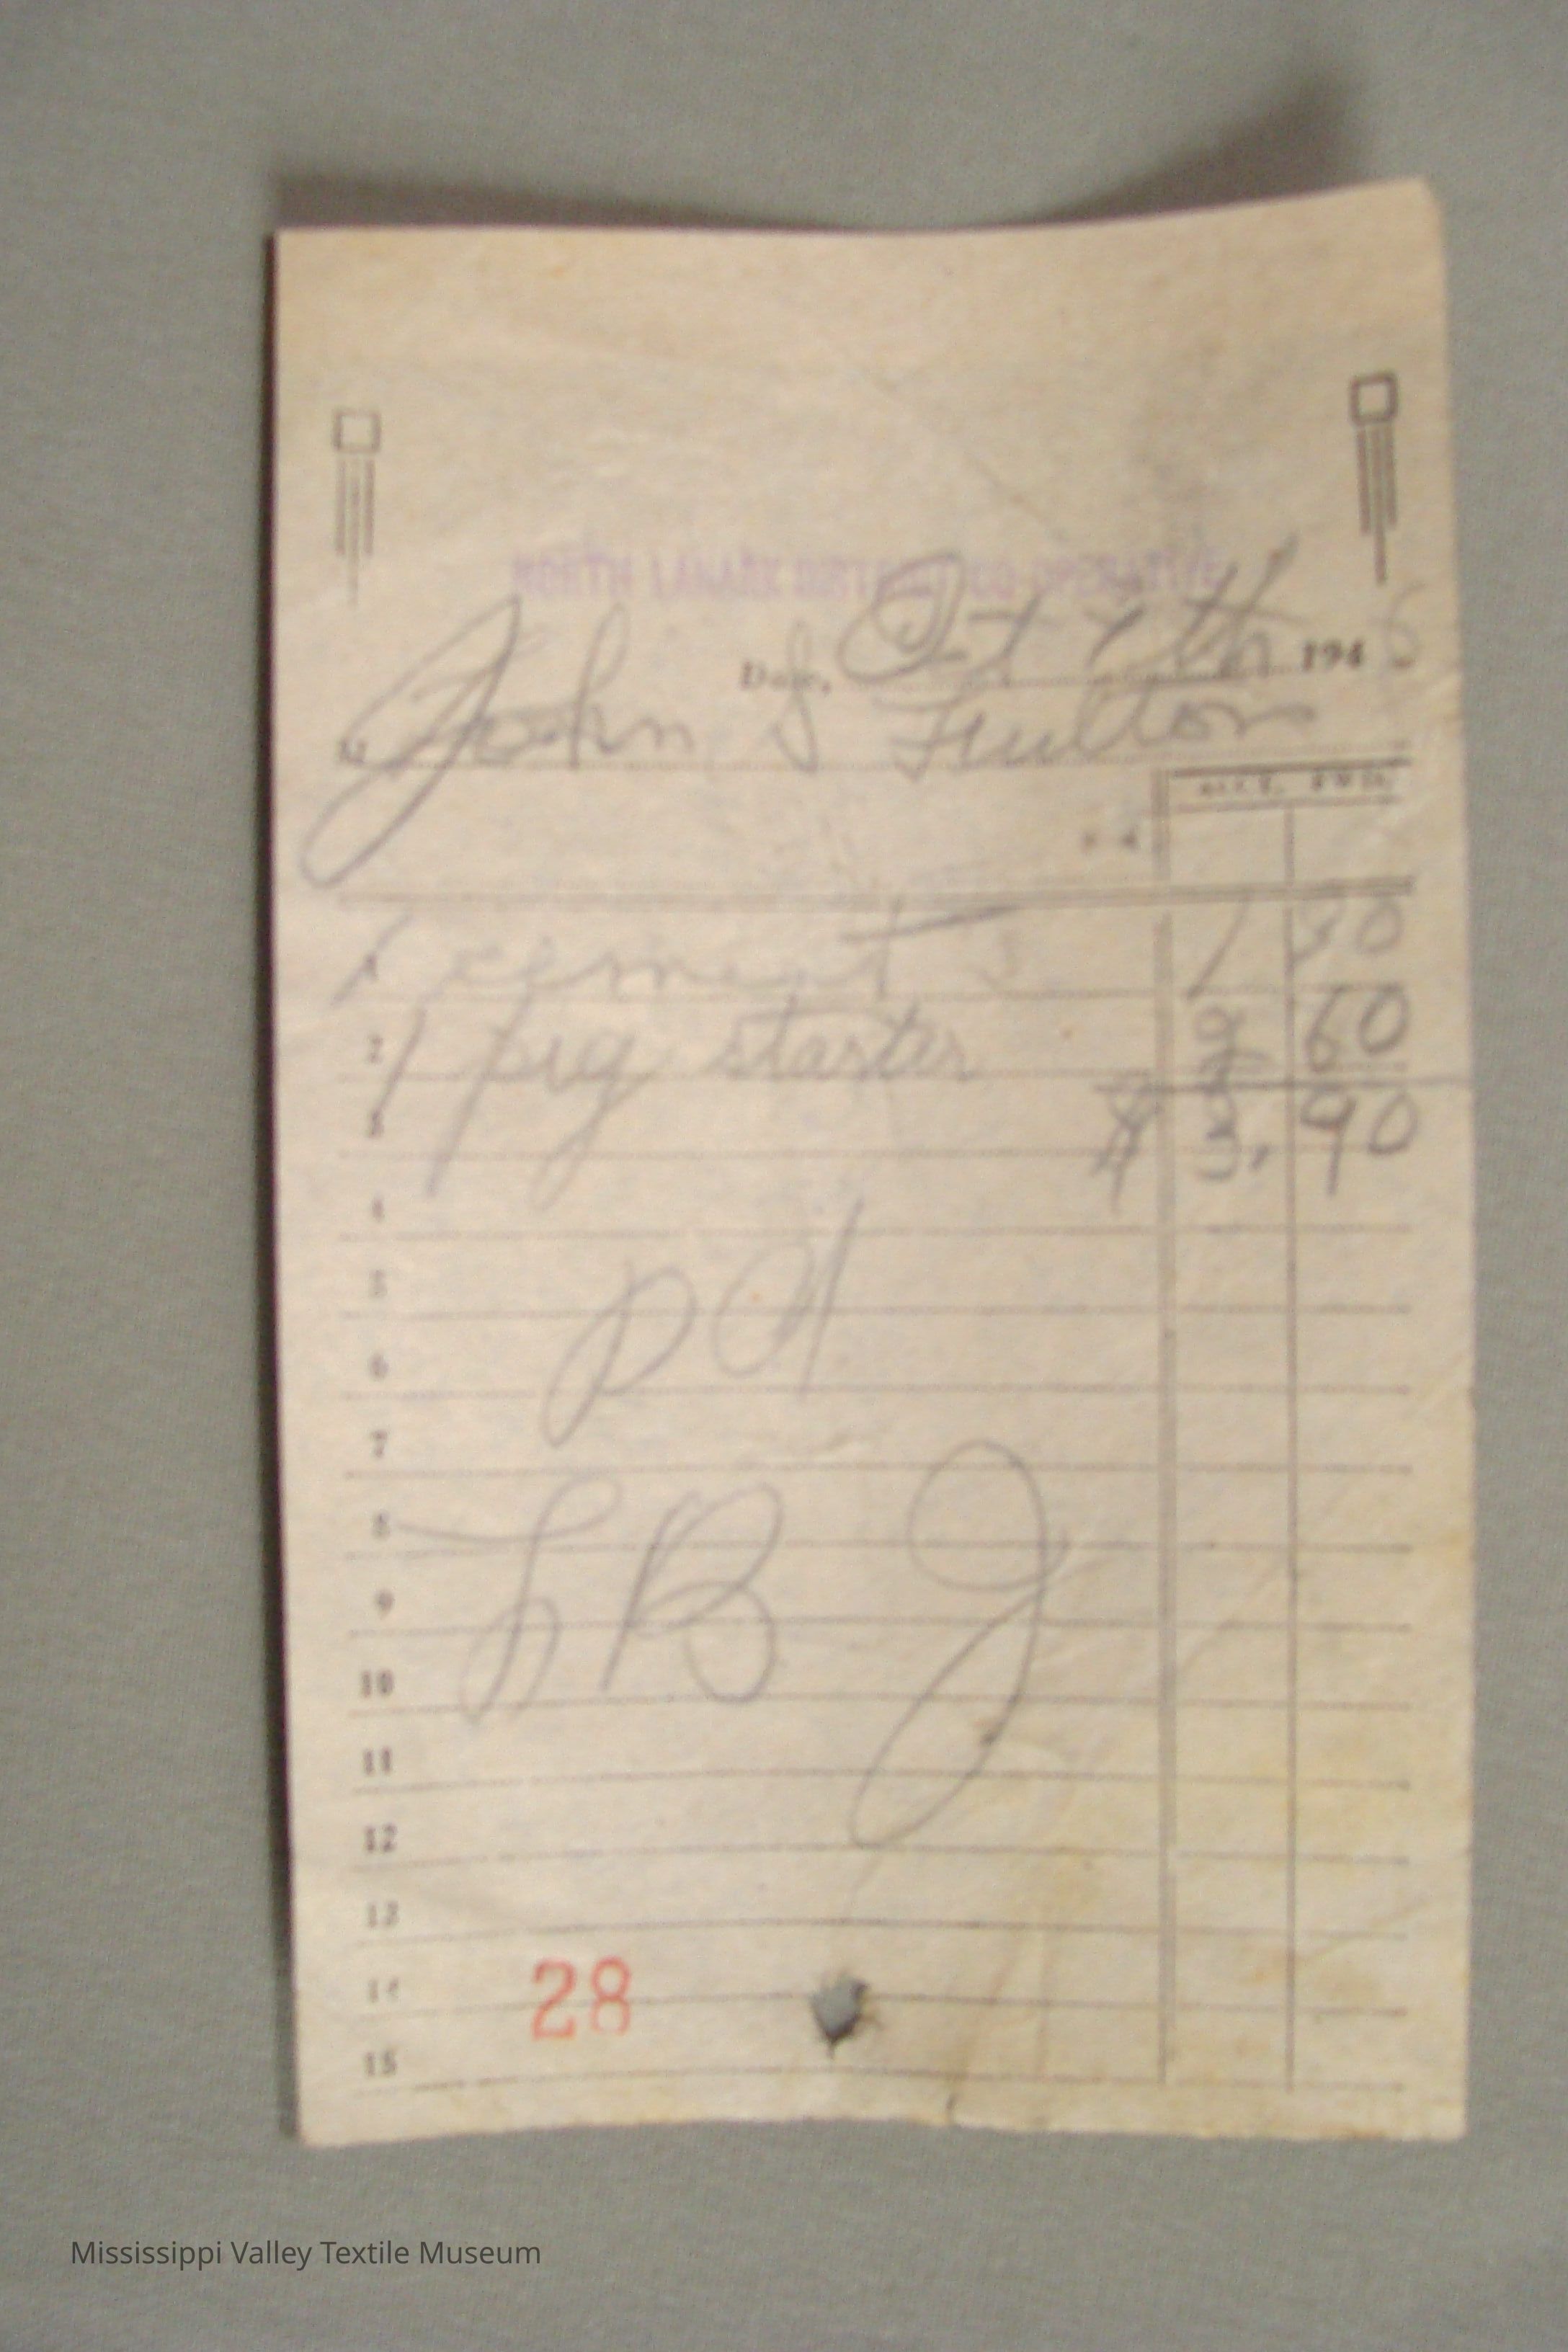 NORTH LANARK DISTRICT CO-OPERATIVE
Date, Oct 7th 1946
M John S Fulton
ACCT. FWD.
1 1 cement 1 30
2 1 pig starter 2 60
3 $ 3.90
4
5 pd
6
7
8
9 LBJ
10
11
12
13
14 28
15
Mississippi Valley Textile Museum